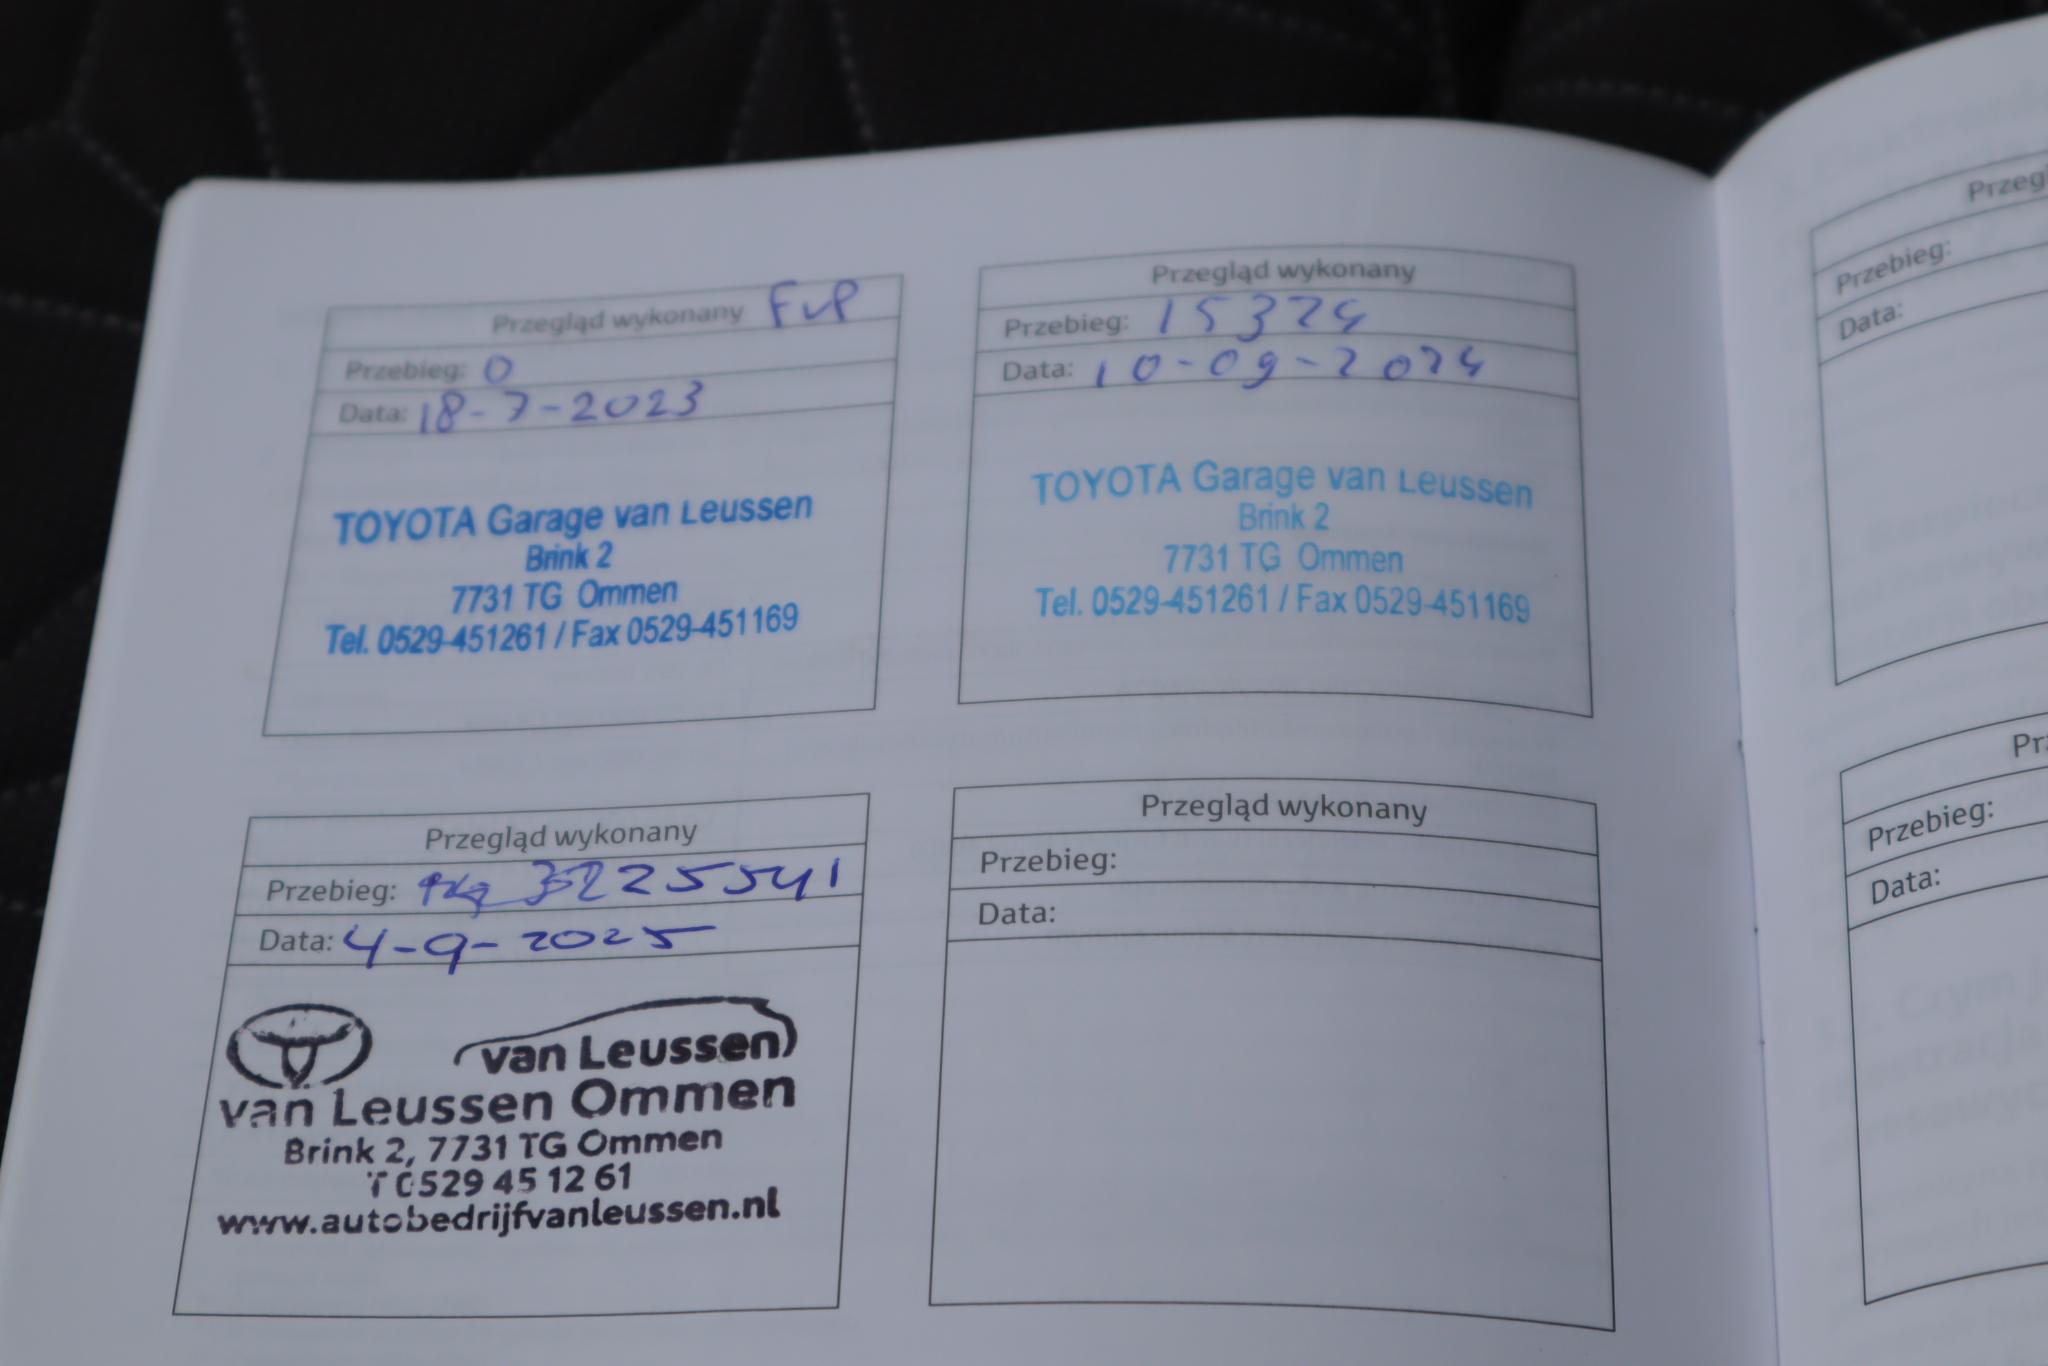 Przegląd wykonany FvP
Przebieg: 0
Data: 18-7-2023
TOYOTA Garage van Leussen
Brink 2
7731 TG Ommen
Tel. 0529-451261 / Fax 0529-451169
Przegląd wykonany
Przebieg: 15324
Data: 10-09-2024
TOYOTA Garage van Leussen
Brink 2
7731 TG Ommen
Tel. 0529-451261 / Fax 0529-451169
Przegląd wykonany
Przebieg:
Data: 4-9-2025
van Leussen
van Leussen Ommen
Brink 2, 7731 TG Ommen
T 0529 45 12 61
www.autobedrijfvanleussen.nl
Przegląd wykonany
Przebieg:
Data:
Przebieg:
Data:
Przebieg:
Data: